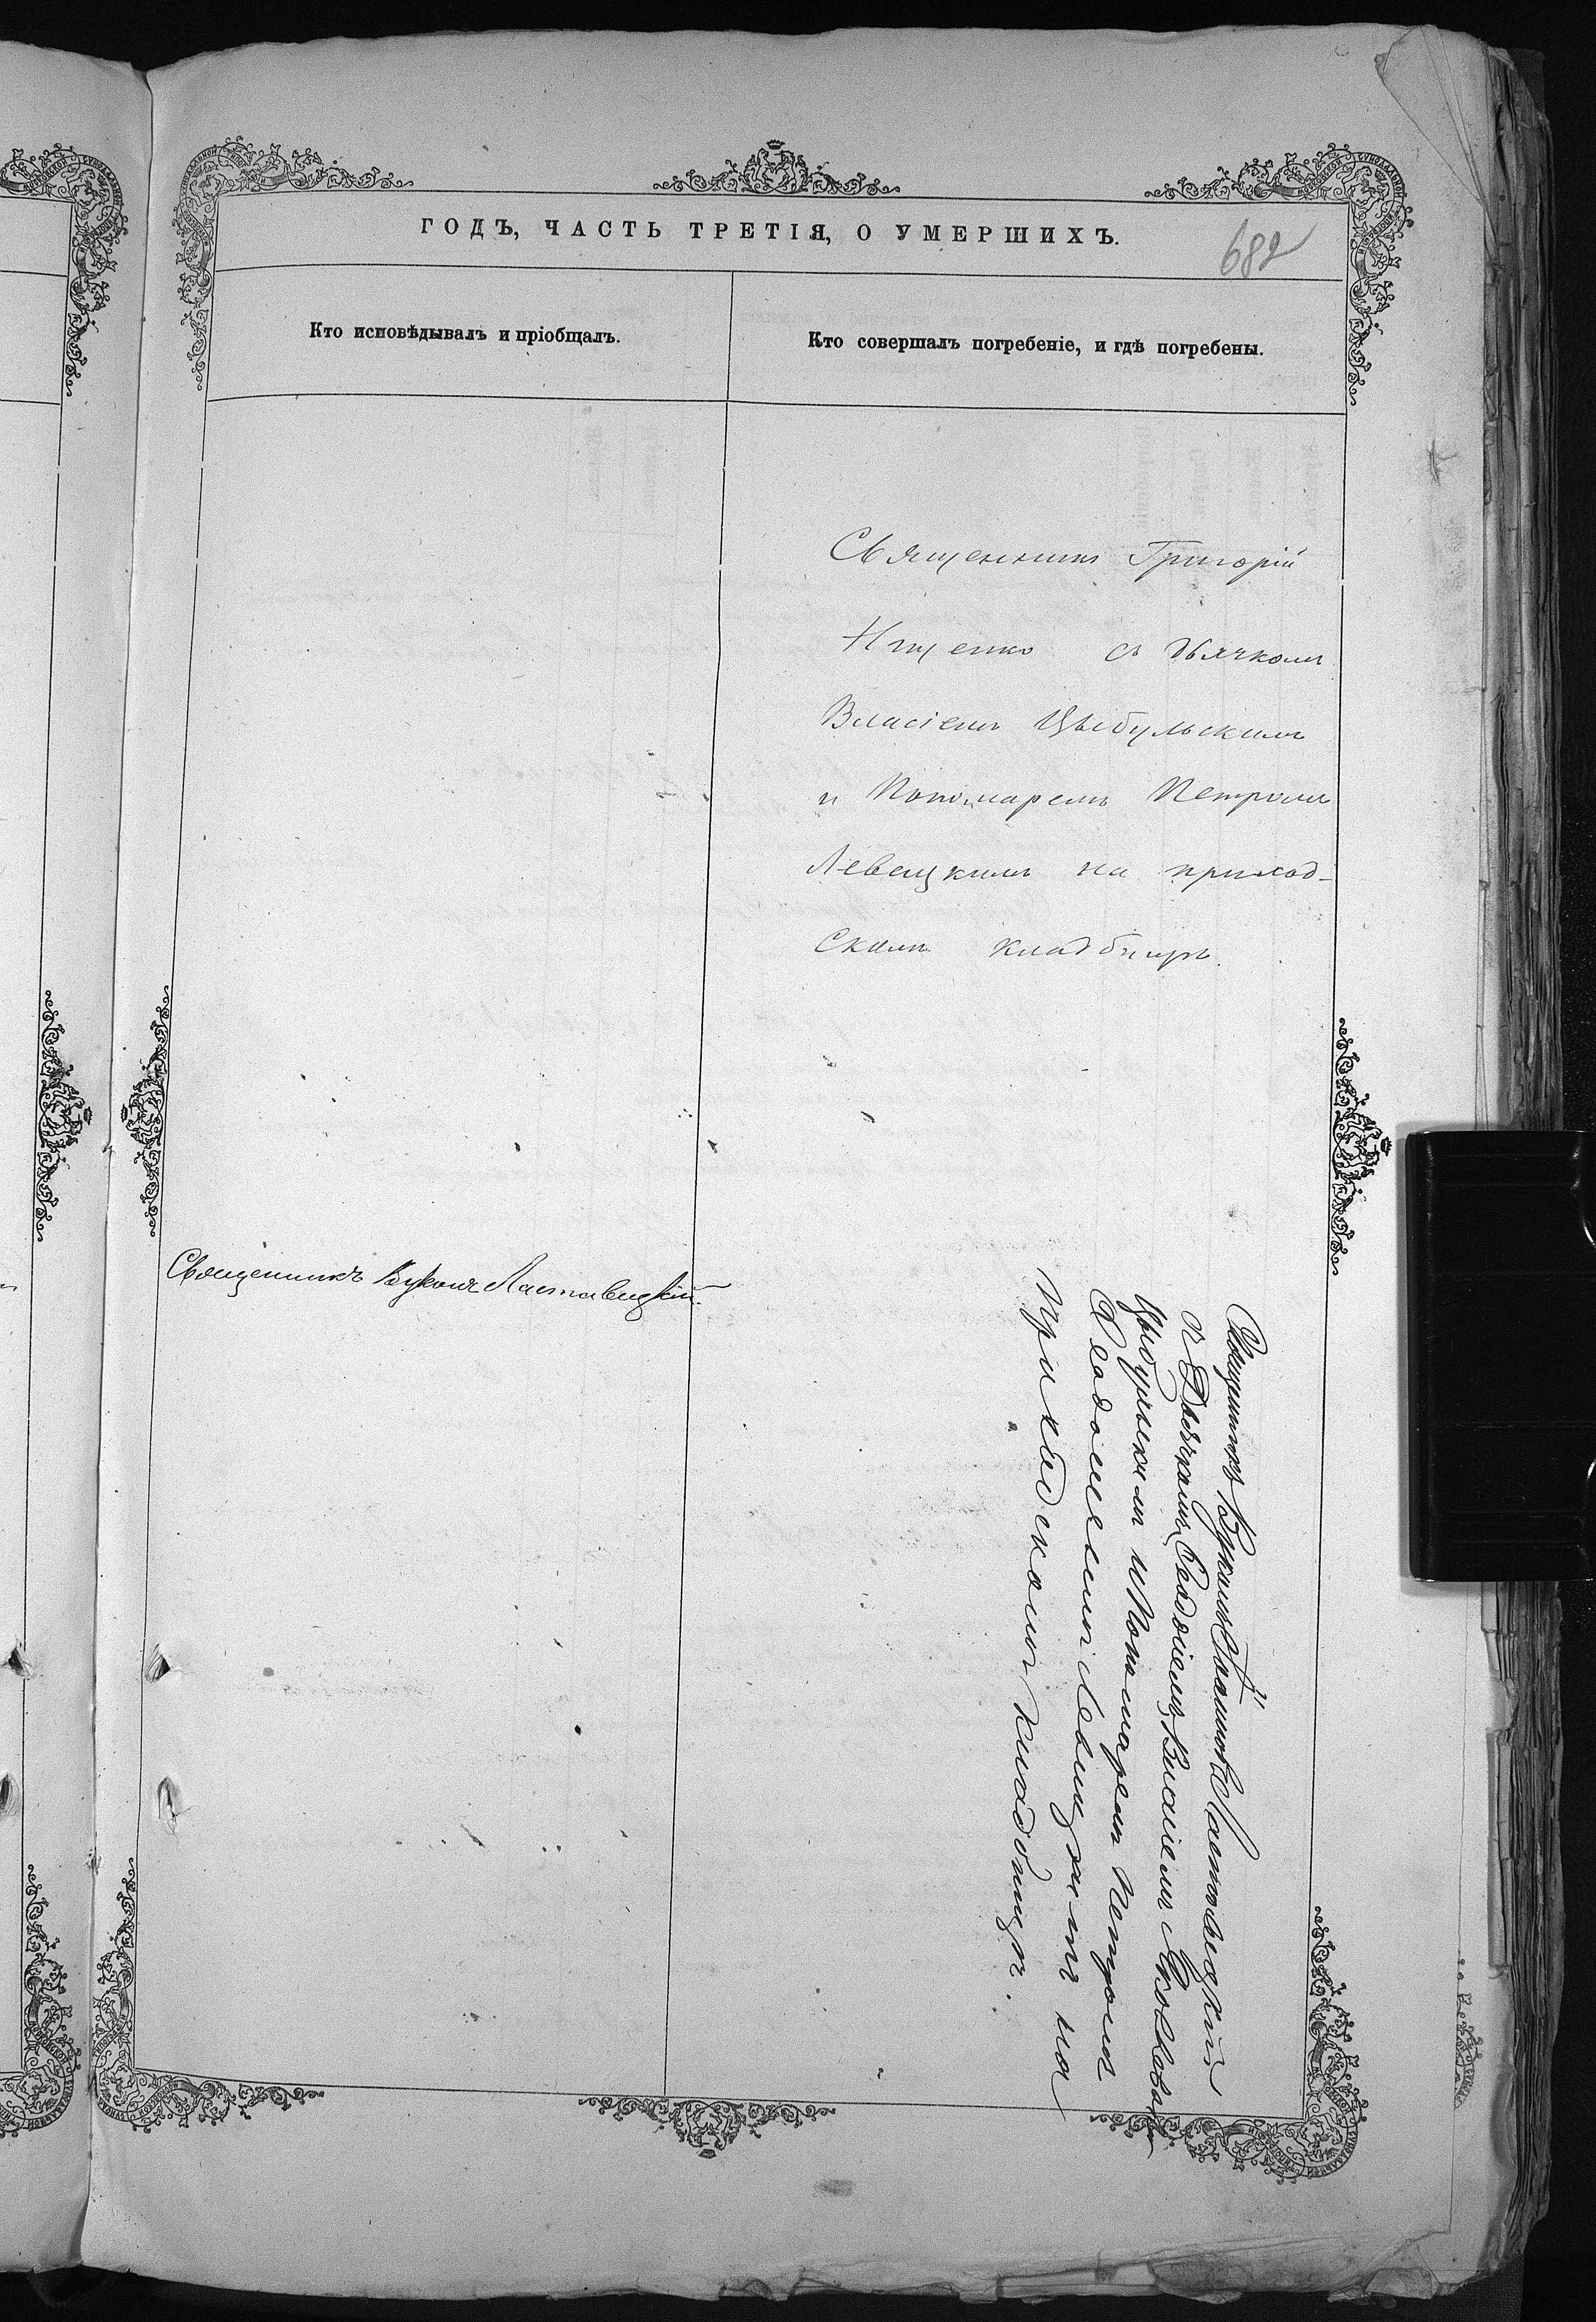 ГОДЪ, ЧАСТЬ ТРЕТІЯ, О УМЕРШИХЪ.
682
Кто исповѣдывалъ и пріобщалъ.
Кто совершалъ погребеніе, и гдѣ погребены.
Священникъ Григорій
Ищенко съ дьячкомъ
Власіемъ Цыбульскимъ
и Пономаремъ Петромъ
Левицкимъ на приход-
скомъ кладбищѣ.
Священникъ Вуколъ Ластовецкій.
Священникъ Вуколъ Ластовецкій
съ Дьячкомъ Власіемъ
Цыбульскимъ и Пономаремъ Петромъ
Левицкимъ на
приходскомъ кладбищѣ.